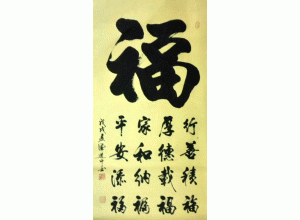 福
行善積福
厚德載福
家和納福
平安添福
戊戌